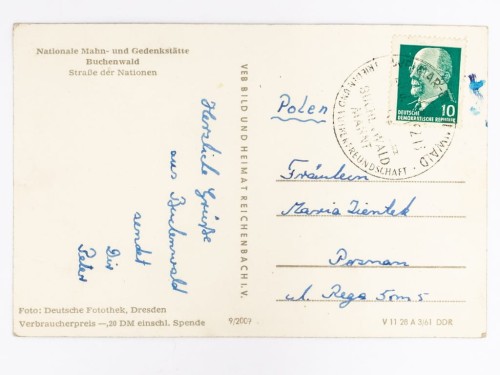 Nationale Mahn- und Gedenkstätte
Buchenwald
Straße der Nationen
Herzliche Grüße
aus Buchenwald
sendet
Dir
Peter
Foto: Deutsche Fotothek, Dresden
Verbraucherpreis —,20 DM einschl. Spende
9/2009
VEB BILD UND HEIMAT REICHENBACH I.V.
DEUTSCHE
DEMOKRATISCHE REPUBLIK
10
BUCHENWALD
MAHNT
Polen
Fräulein
Maria Zientek
Poznan
ul. Rega 5 m 5
V 11 28 A 3/61 DDR